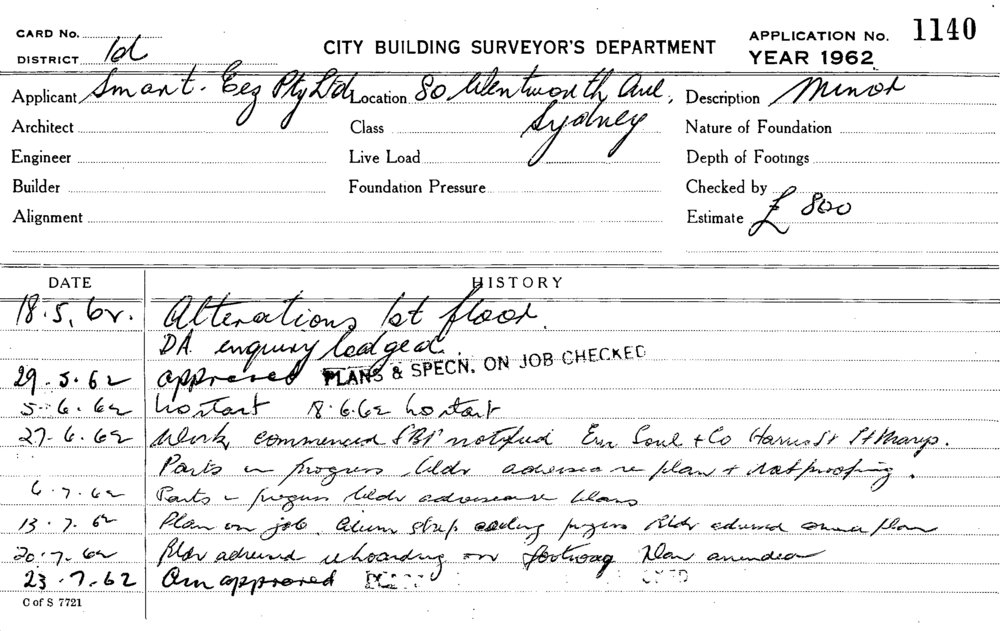 CARD No.
DISTRICT 1d
CITY BUILDING SURVEYOR'S DEPARTMENT
APPLICATION No. 1140
YEAR 1962
Applicant Smart-Eez Pty Ltd Location 80 Wentworth Ave, Sydney Description Minor
Architect Class Nature of Foundation
Engineer Live Load Depth of Footings
Builder Foundation Pressure Checked by
Alignment Estimate £ 800
DATE HISTORY
18.5.62. Alterations 1st floor.
DA enquiry lodged.
29.5.62 approved PLANS & SPECN. ON JOB CHECKED
5.6.62 no start 18.6.62 no start
27.6.62 Work commenced notified Soul & Co Harris St St Marys.
Parts in progress bldr advised re plan + ratproofing.
6.7.62 Parts in progress bldr advised re plans
13.7.62 Plan on job. strip ceiling progress Bldr advised plan
20.7.62 Bldr advised re hoarding on footway Plan amended
23.7.62 Am approved
C of S 7721